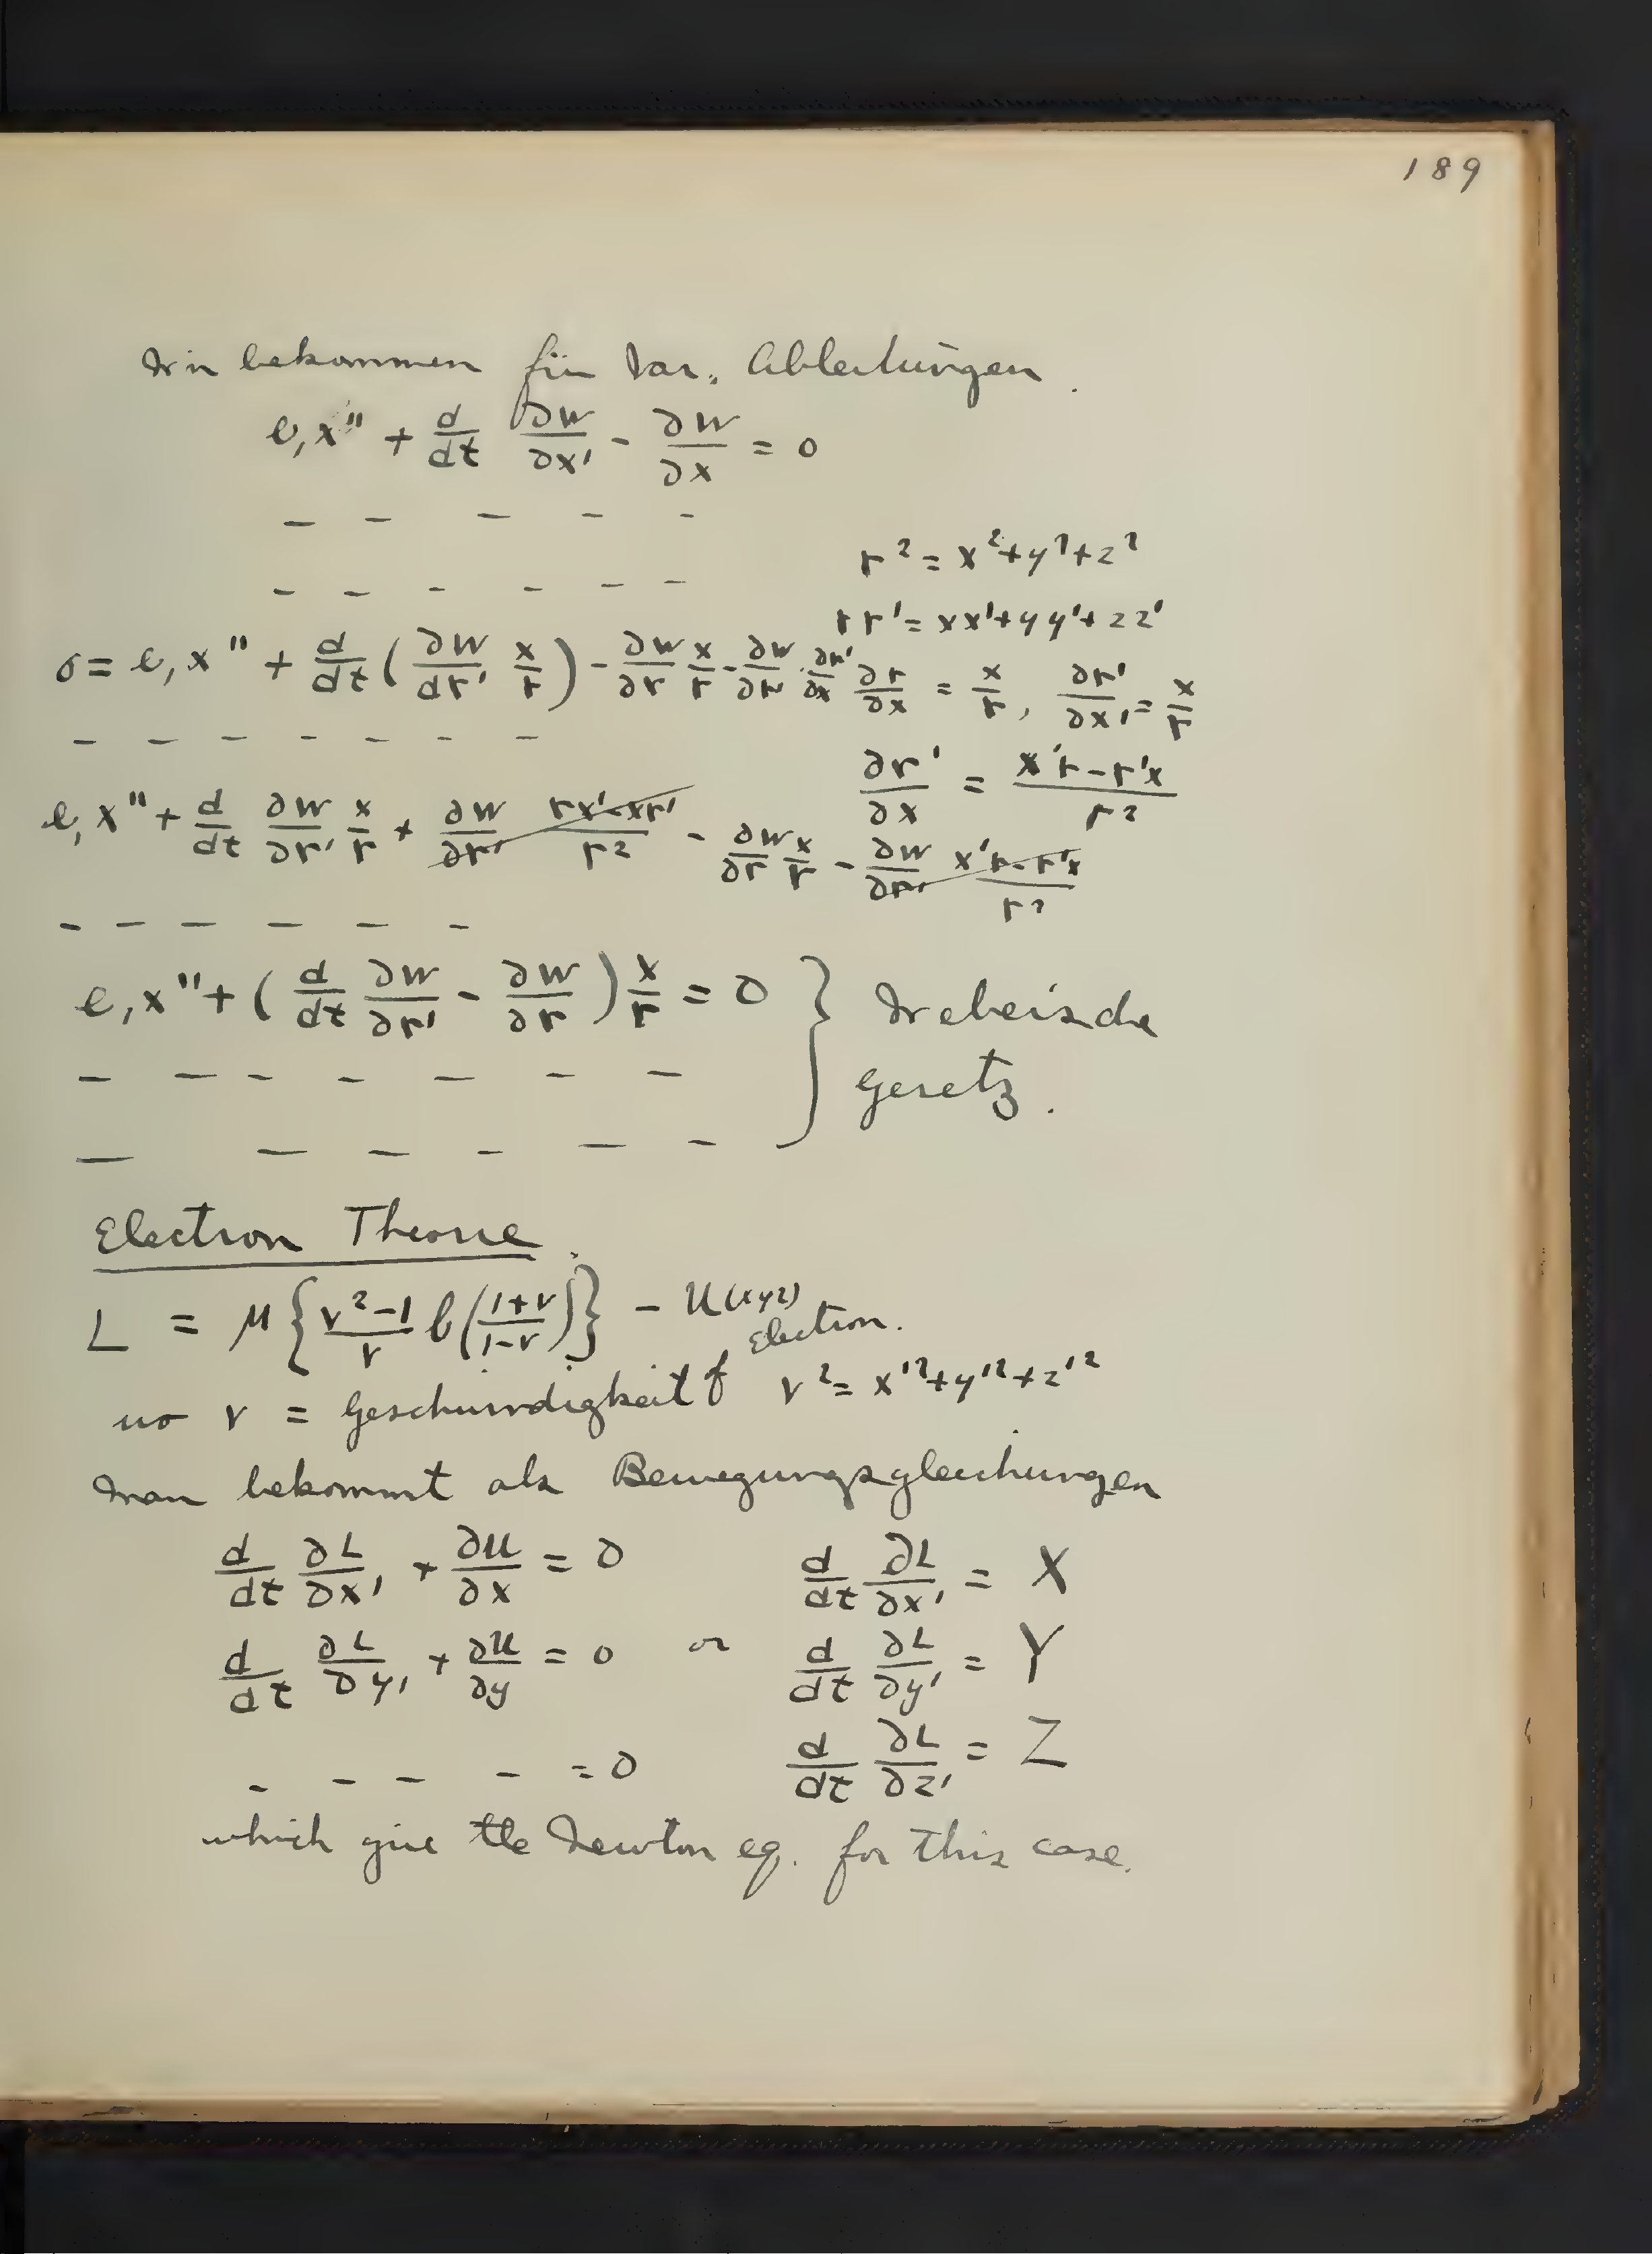 189
Wir bekommen für Var. Ableitungen.
e, x'' + d/dt ∂W/∂x' - ∂W/∂x = 0
– – – – –
r² = x²+y²+z²
– – – – – –
rr' = xx'+yy'+zz'
0 = e, x'' + d/dt (∂W/dr' x/r) - ∂W/∂r x/r - ∂W/∂r' · ∂r'/∂x
∂r/∂x = x/r, ∂r'/∂x' = x/r
– – – – – – –
∂r'/∂x = (x'r - r'x)/r²
e, x'' + d/dt ∂W/∂r' x/r + ∂W/∂r' (rx'-xr')/r² - ∂W/∂r x/r - ∂W/∂r' (x'r-r'x)/r²
– – – – – –
e, x'' + (d/dt ∂W/∂r' - ∂W/∂r) x/r = 0 } Webeische
– – – – – – – Gesetz.
– – – – – –
Electron Theorie.
L = μ {(v²-1)/v l((1+v)/(1-v))} - U(xyz)
wo v = Geschwindigkeit of Electron. v² = x'²+y'²+z'²
Man bekommt als Bewegungsgleichungen
d/dt ∂L/∂x' + ∂U/∂x = 0 d/dt ∂L/∂x' = X
d/dt ∂L/∂y' + ∂U/∂y = 0 or d/dt ∂L/∂y' = Y
– – – – = 0 d/dt ∂L/∂z' = Z
which give the Newton eq. for this case.